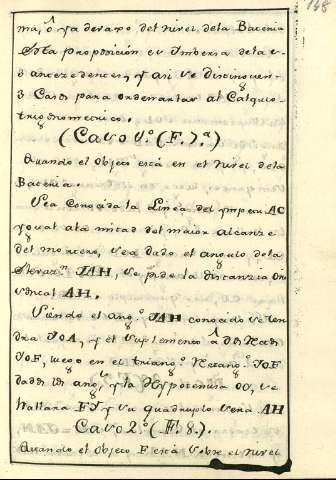 148
ma, ó ya debaxo del nivel dela Bateria
Esta proposición es Imbersa delas
antecedentes, y asi se Distinguen
3 Casos para ordenarlas al Calculo
trigonometrico.
(Caso 1.º (F. 7.ª)
Quando el Objeto está en el nivel dela
Bateria.
Sea Conocida la Linea del ympetu AC
ygual ala mitad del maior alcanze
del mortero, sea dado el angulo dela
Elevaz.n JAH, se pide la distanzia Ori
sontal AH.
Siendo el ang.º JAH conocido se ten
drá JOA, y el suplemento á dos Rectos
JOF, luego en el triang.º Rectang.º JOF
dados los ang.s, y la Hypotenusa OO, se
hallara FJ y su quadruplo sera AH
Caso 2.º (F. 8.).
Quando el objeto F está sobre el nivel